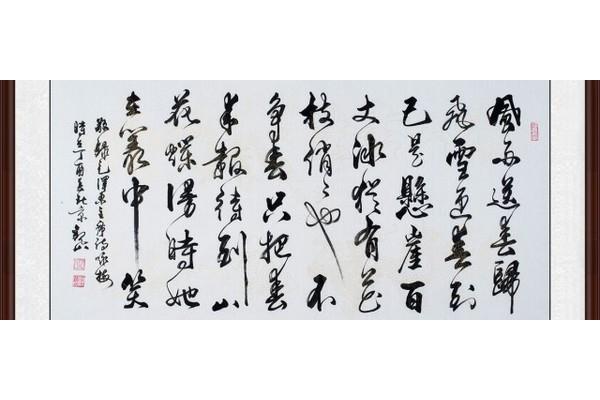 風雨送春歸
飛雪迎春到
已是懸崖百
丈冰猶有花
枝俏〻也不
争春只把春
来報待到山
花爛漫時她
在叢中笑
敬録毛澤東主席詩咏梅
時在丁酉夏北京